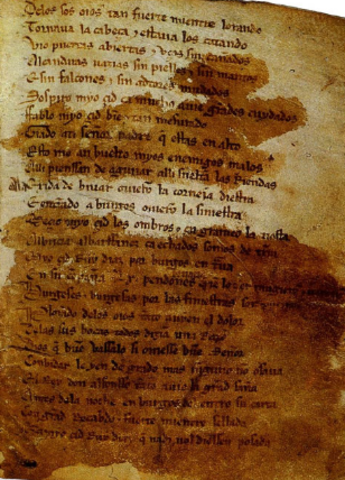 Delos sos oios tan fuerte mientre lorando
Tornaua la cabeça & estaua los catando
Vio puertas abiertas & vços sin cañados
Alcandaras uazias sin pielles & sin mantos
E sin falcones & sin adtores mudados
Sospiro myo çid ca mucho auie grandes cuydados
Fablo myo çid bien & tan mesurado
Grado ati señor padre q estas en alto
Esto me an buelto myos enemigos malos
Alli pienssan de aguiiar alli sueltan las Riendas
exida de biuar ouieron la corneia diestra
entrando a burgos ouieron la siniestra
Meçio myo çid los ombros & en grameo la tiesta
Albricia albarffanez ca echados somos de tierra
Myo çid Ruy diaz por burgos en traua
En su conpaña .Lx. pendones
Burgeses & burgesas por las finiestras son
Plorando delos oios tanto auyen el dolor
Delas sus bocas todos dizian una Razon
Dios q buen vassalo si ouiesse buen Señor
Conbidar le yen de grado mas ninguno non osaua
El Rey don alfonsso tanto auie la grand saña
Antes dela noche en burgos del entro su carta
Con grand Recabdo & fuerte mientre sellada
myo çid Ruy diaz q nadi nol diessen posada